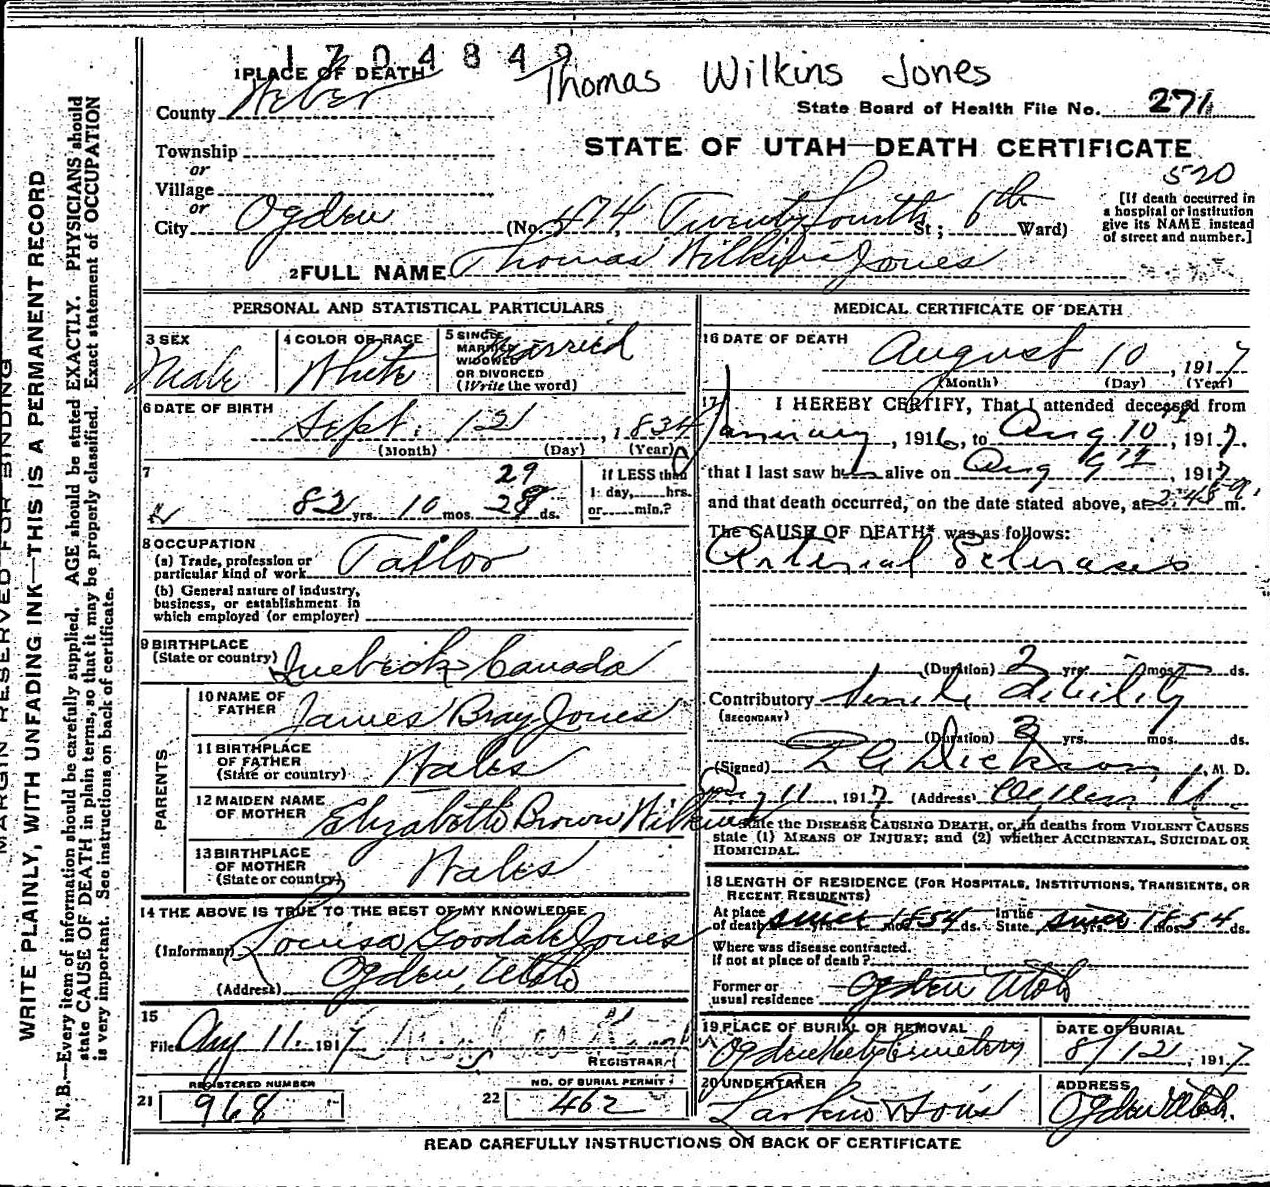 1704849
Thomas Wilkins Jones
1 PLACE OF DEATH
County Weber
State Board of Health File No. 271
STATE OF UTAH—DEATH CERTIFICATE
Township
or
Village
or
City Ogden (No. 474, Twenty fourth St; 6th Ward)
520
[If death occurred in a hospital or institution give its NAME instead of street and number.]
2 FULL NAME Thomas Wilkins Jones
PERSONAL AND STATISTICAL PARTICULARS
3 SEX Male
4 COLOR OR RACE White
5 SINGLE MARRIED WIDOWED OR DIVORCED (Write the word) Married
6 DATE OF BIRTH Sept. 12, 1834
(Month) (Day) (Year)
7
82 yrs. 10 mos. 29 28 ds.
If LESS than 1 day, hrs. or min.?
8 OCCUPATION
(a) Trade, profession or particular kind of work Tailor
(b) General nature of industry, business, or establishment in which employed (or employer)
9 BIRTHPLACE (State or country) Quebeck Canada
PARENTS
10 NAME OF FATHER James Bray Jones
11 BIRTHPLACE OF FATHER (State or country) Wales
12 MAIDEN NAME OF MOTHER Elizabeth Brown Wilkins
13 BIRTHPLACE OF MOTHER (State or country) Wales
14 THE ABOVE IS TRUE TO THE BEST OF MY KNOWLEDGE
(Informant) Louisa Goodale Jones
(Address) Ogden, Utah
15
Filed Aug 11. 1917
REGISTRAR
21 REGISTERED NUMBER 968
22 NO. OF BURIAL PERMIT 462
MEDICAL CERTIFICATE OF DEATH
16 DATE OF DEATH August 10, 1917
(Month) (Day) (Year)
17 I HEREBY CERTIFY, That I attended deceased from
January, 1916, to Aug 10, 1917.
that I last saw him alive on Aug 9th, 1917
and that death occurred, on the date stated above, at 2:45 a. m.
The CAUSE OF DEATH* was as follows:
Arterial Sclerosis
(Duration) 2 yrs. mos. ds.
Contributory Senile debility
(SECONDARY)
(Duration) 3 yrs. mos. ds.
(Signed) Dickson, M. D.
Aug 11, 1917 (Address) Ogden U.
state the DISEASE CAUSING DEATH, or, in deaths from VIOLENT CAUSES
state (1) MEANS OF INJURY; and (2) whether ACCIDENTAL, SUICIDAL OR
HOMICIDAL.
18 LENGTH OF RESIDENCE (FOR HOSPITALS, INSTITUTIONS, TRANSIENTS, OR RECENT RESIDENTS)
At place of death since 1854 yrs. mos. ds. In the State since 1854 yrs. mos. ds.
Where was disease contracted. If not at place of death?
Former or usual residence Ogden Utah
19 PLACE OF BURIAL OR REMOVAL Ogden City Cemetery
DATE OF BURIAL 8/12, 1917
20 UNDERTAKER Larkin & Sons
ADDRESS Ogden Utah.
READ CAREFULLY INSTRUCTIONS ON BACK OF CERTIFICATE
MARGIN RESERVED FOR BINDING
WRITE PLAINLY, WITH UNFADING INK—THIS IS A PERMANENT RECORD
N. B.—Every item of information should be carefully supplied. AGE should be stated EXACTLY. PHYSICIANS should
state CAUSE OF DEATH in plain terms, so that it may be properly classified. Exact statement of OCCUPATION
is very important. See instructions on back of certificate.